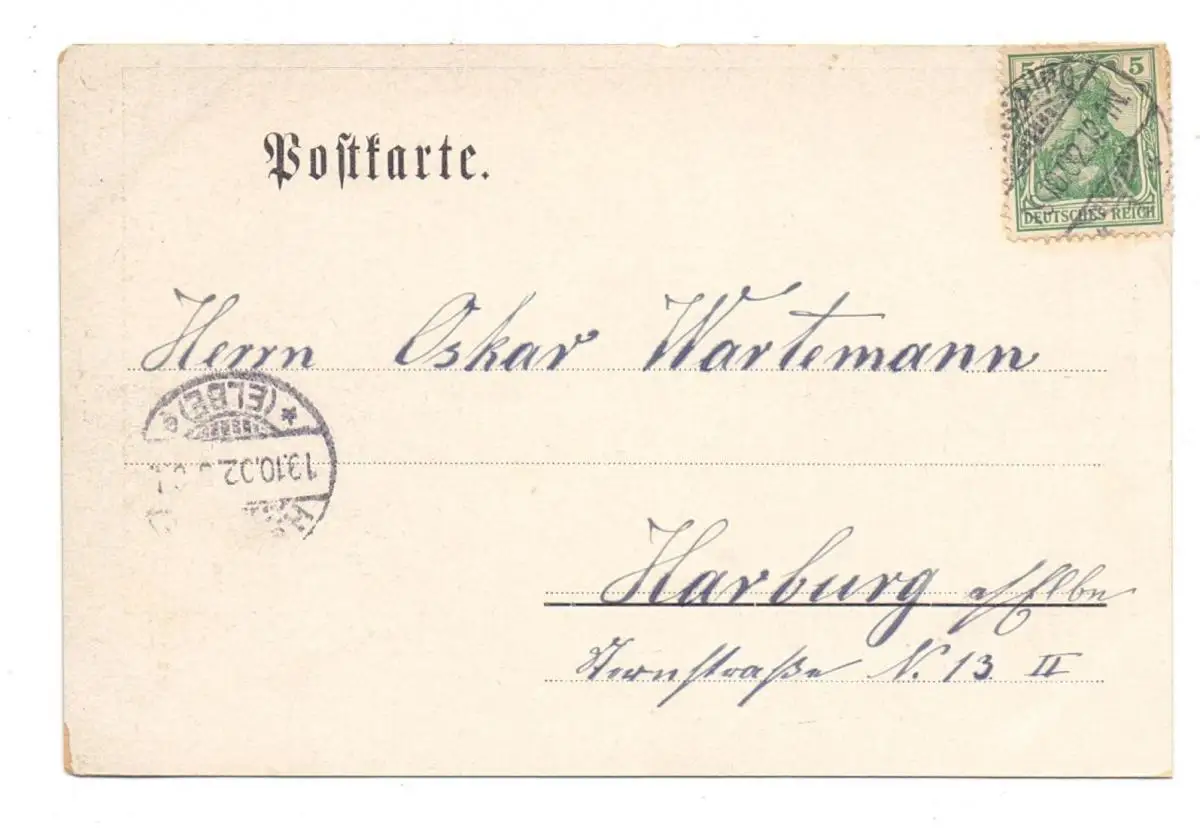 Postkarte.
5 5
DEUTSCHES REICH
Herrn Oskar Wartemann
(ELBE)
13.10.02.
Harburg a/Elbe
Sternstraße N. 13 II